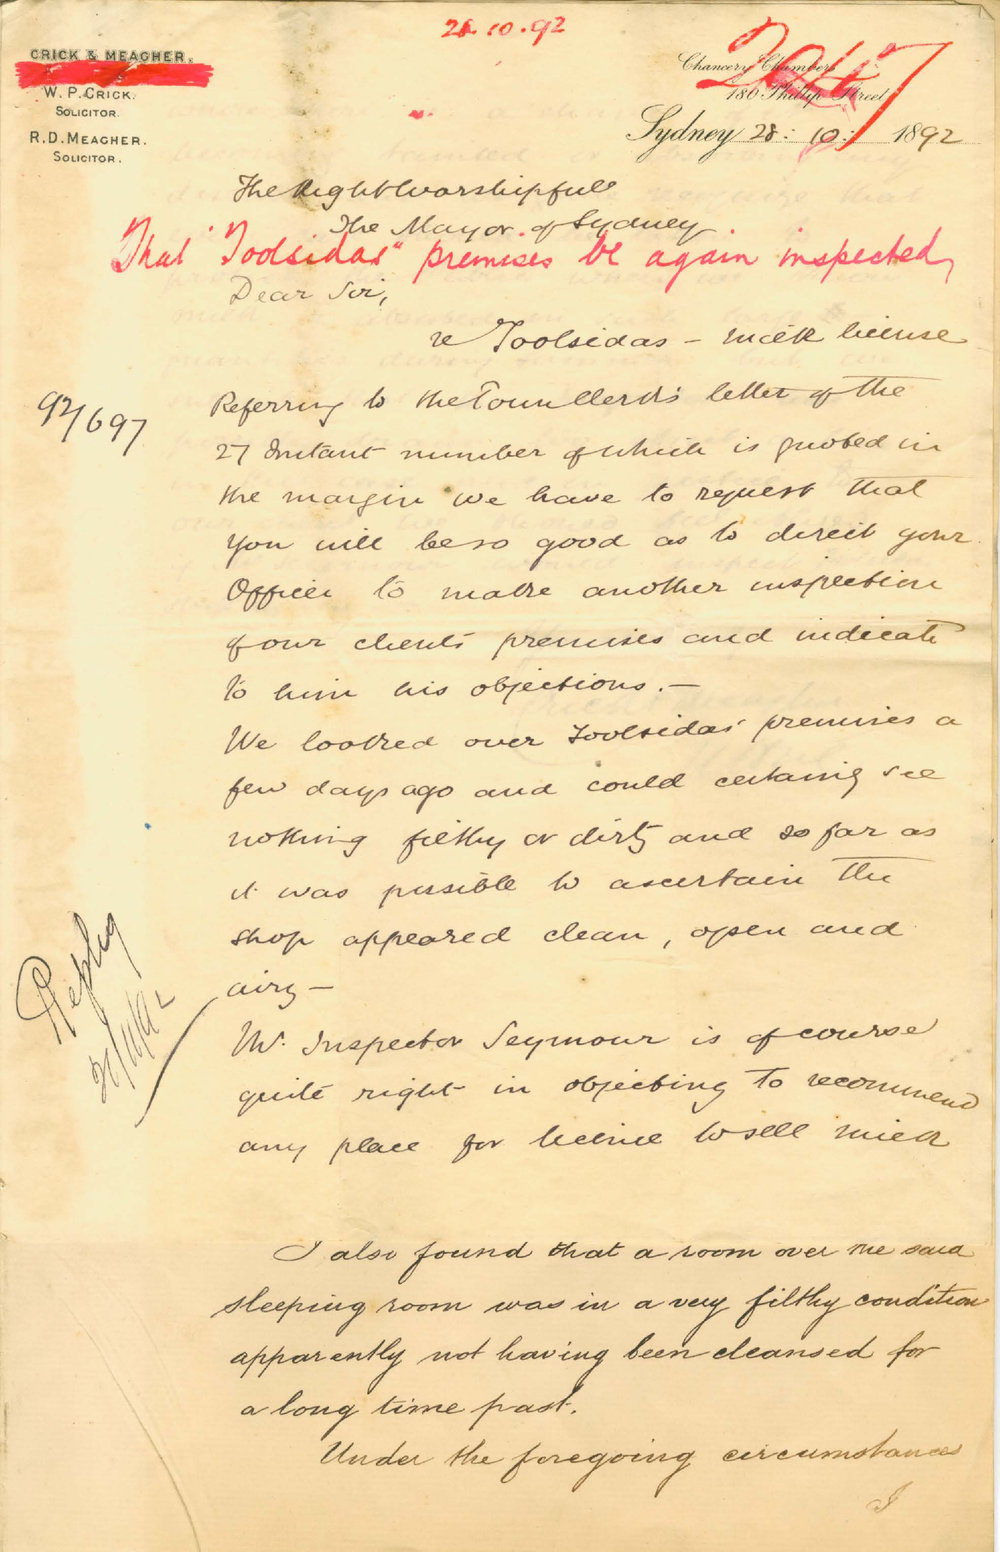 28.10.92
CRICK & MEAGHER.
W. P. CRICK.
SOLICITOR.
R. D. MEAGHER.
SOLICITOR.
Chancery Chambers
186 Phillip Street
Sydney 28: 10: 1892
The Right Worshipfull
The Mayor of Sydney
That "Toolsidas" premises be again inspected
Dear Sir,
re Toolsidas - milk license
92/697
Referring to the Town Clerk's letter of the
27 Instant number of which is quoted in
the margin we have to request that
you will be so good as to direct your
Officer to make another inspection
of our client's premises and indicate
to him his objections. —
We looked over Toolsidas' premises a
few days ago and could certainly see
nothing filthy or dirty and so far as
it was possible to ascertain the
shop appeared clean, open and
airy —
Reply
Mr. Inspector Seymour is of course
quite right in objecting to recommend
any place for license to sell milk
I also found that a room over the said
sleeping room was in a very filthy condition
apparently not having been cleansed for
a long time past.
Under the foregoing circumstances
I